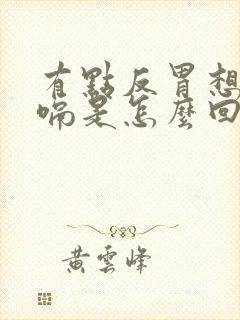 有點反胃想
嗝是怎麼回
黃雲峰